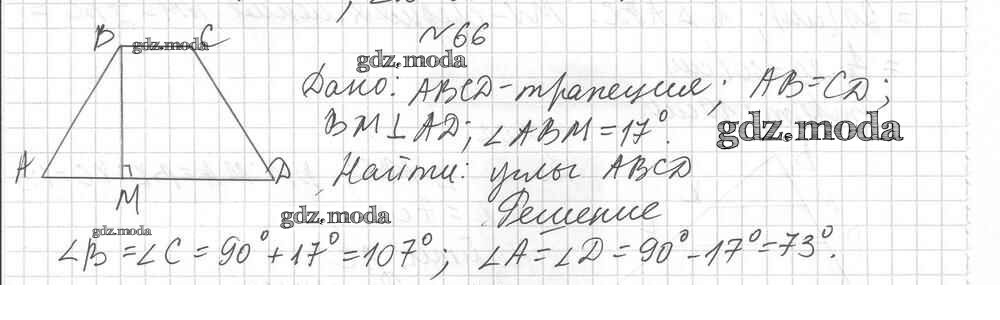 №66
B gdz.moda C
gdz.moda
Дано: ABCD-трапеция; AB=CD;
BM⊥AD; ∠ABM=17°.
gdz.moda
A D
Найти: углы ABCD
M
gdz.moda
Решение
gdz.moda
∠B=∠C=90°+17°=107°; ∠A=∠D=90°-17°=73°.